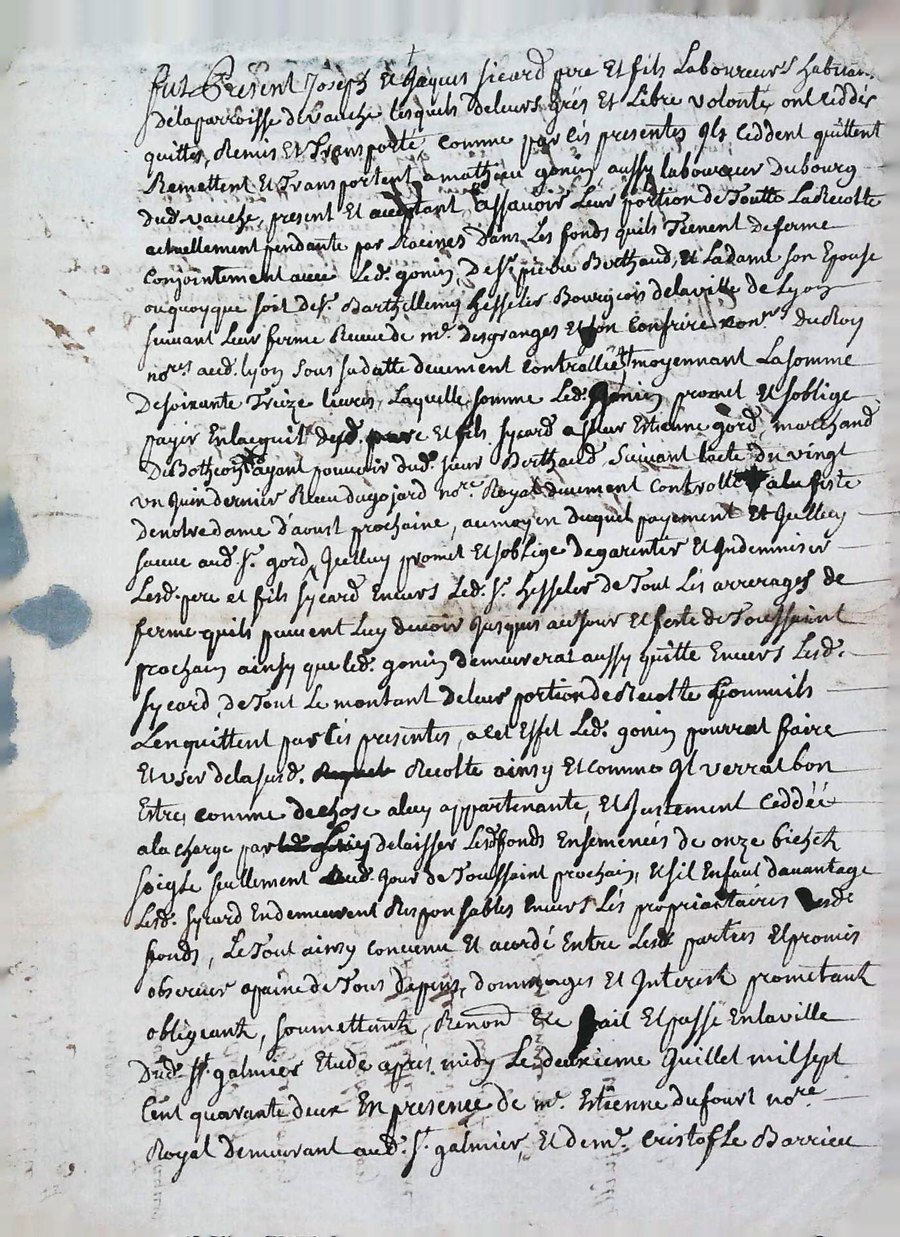 fut Present Joseph Et Jaques sicard pere Et fils Laboureurs habitans
dela parroisse de vauche lesquels de leurs grés Et Libre volonté ont Ceddés
quittés, Remis Et Transporté, Comme par Cés presentes Ils Ceddent quittent
Remettent Et Transportent a mathieu gonin aussy laboureur Dubourg
dud. vauche, present Et aceptant, assavoir Leur portion de Toutte La Recolte
actuellement pendante par Racines Dans Les fonds quils Tienent de ferme
Conjointement avec Led. gonin, De sr. pierre Berthaud, Et La dame son Epouse
ou quoyque soit de sr. Barthellemy hesseler Bourgeois de la ville de Lyon
suivant Leur ferme Reçue de me. Desgranges Et son Confrere Conrs. Du Roy
nores aud. lyon sous sa datte deuement Controllée moyennant La somme
De soixante Treize livres, Laquelle somme Led. gonin promet Et soblige
payer En lacquit desd. pere Et fils sycard a sieur Estienne gord, marchand
De Botheon ayant pouvoir dud. sieur Berthaud, suivant lacte du vingt
un Juin dernier Receu dugojard nore. Royal duement Controllé a la feste
de notre dame d'aoust prochaine, au moyen duquel payement Et Jcelluy
sauve aud. sr. gord, Jcelluy promet Et soblige de garentir Et Indemniser
Lesd. pere et fils sycard Envers Led. sr. hesseler de Tout Lés arrerages de
ferme quils peuvent Luy devoir Jusques au Jour Et feste de Toussaint
prochain ainsy que led. gonin demeurerat aussy quitte Envers Lesd.
sycard, de Tout Le montant de leur portion de Recolte
Lenquittent par Cés presentes, a cet Effet Led. gonin pourrat faire
Et User dela susd. Recolte ainsy Et comme Jl verrat bon
Estre, comme de chose a luy appartenante, Et Justement Ceddéé
a la charge par de laisser Lesd. fonds Ensemencés de onze bichets
soigle seullement aud. Jour de Toussaint prochain, Et sil En faut davantage
Lesd. sycard En demeurent Responsables Envers Lés propriaitaires desd.
fonds, Le Tout ainsy convenu Et acordé Entre Lesd. parties Et promis
observer a paine de Tous depens, dommages Et Interest prometant
obligeant, soumettant, Renond. Etc fait Et passé En la ville
Dud. st. galmier Etude apres midy Le deuxieme Juillet mil sept
Cent quarante deux En presence de me. Estienne dufourt nore.
Royal demeurant aud. st. galmier, Et de me. Cristofle Barrieu